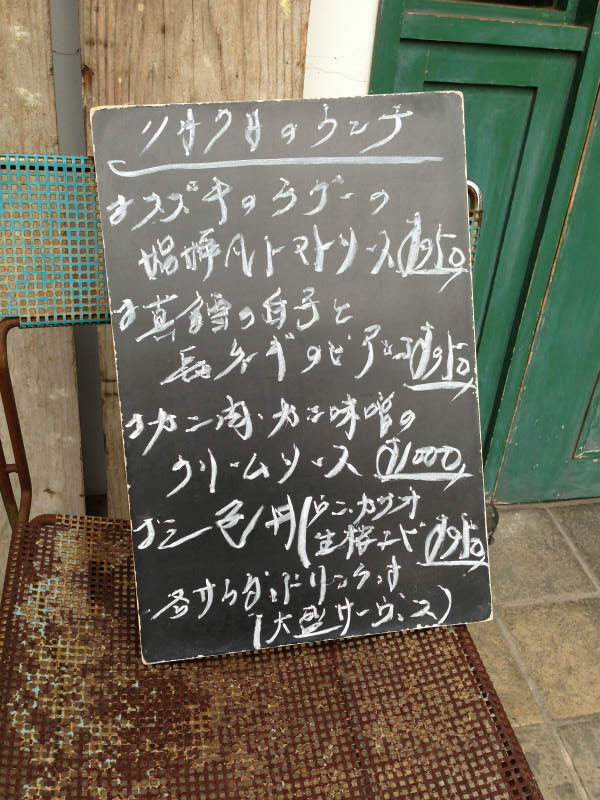 リオクオのランチ
・スズキのラグーの
トマトソース ¥950
・真鱈の白子と
長ネギのビアンコ ¥950
・カニ肉・カニ味噌の
クリームソース ¥1000
・三色丼(ウニ・カツオ
生桜エビ ¥950
各サラダ・ドリンク付
(大盛サービス)